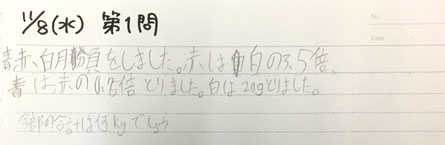 11/8(水) 第1問
青、赤、白月勝負をしました。赤は白の3.5倍、
青は赤の0.8倍とりました。白は20gとりました。
全部の合計は何kgでしょう